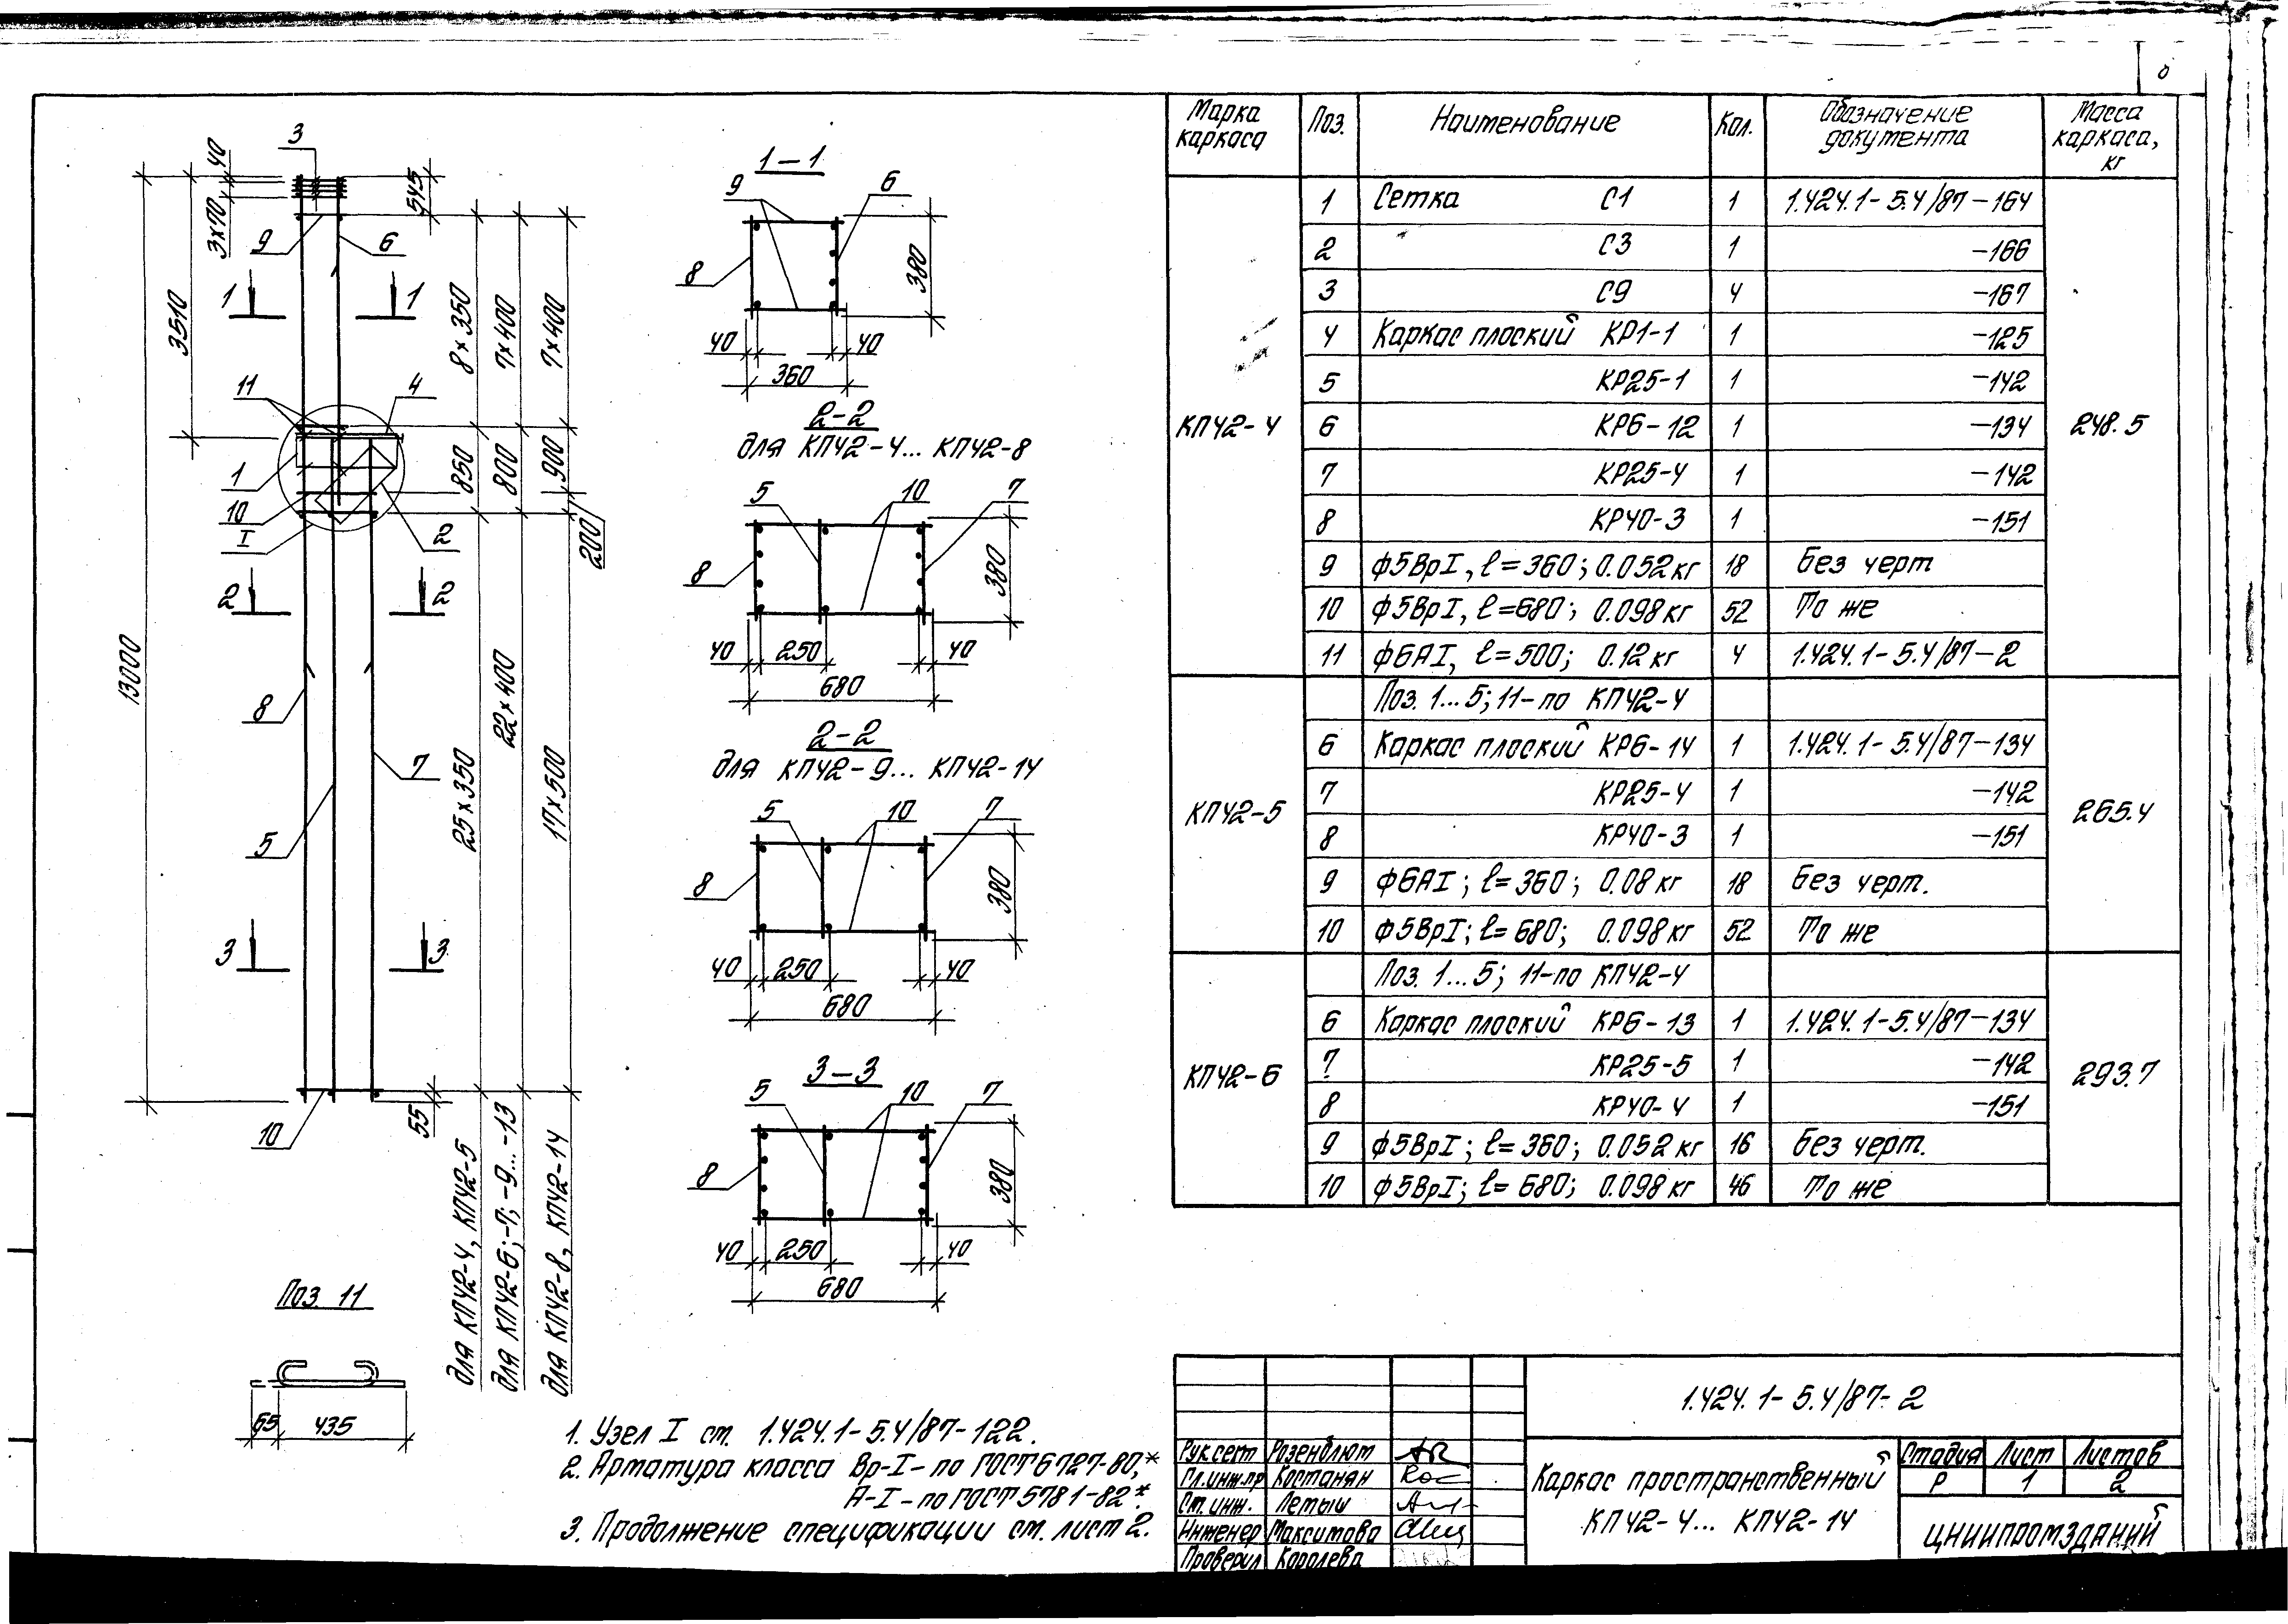 3
40
3х70
545
9
6
1
1
3510
8 х 350
7 х 400
7 х 400
11
4
1
10
I
2
850
800
900
200
2
2
13000
8
7
5
25 х 350
22 х 400
17 х 500
3
3
10
55
для КПЧ2-4, КПЧ2-5
для КПЧ2-6;-7;-9...-13
для КПЧ2-8, КПЧ2-14
Поз. 11
65
435
1-1
9
6
8
380
40
40
360
2-2
для КПЧ2-4... КПЧ2-8
5
10
7
8
380
40
250
40
680
2-2
для КПЧ2-9... КПЧ2-14
5
10
7
8
380
40
250
40
680
3-3
5
10
7
8
380
40
250
40
680
1. Узел I см. 1.424.1-5.4/87-122.
2. Арматура класса Вр-I-по ГОСТ 6727-80,*
А-I-по ГОСТ 5781-82*.
3. Продолжение спецификации см. лист 2.
Марка каркаса Поз. Наименование Кол. Обозначение документа Масса каркаса, кг
КПЧ2-4 248.5
1 Сетка С1 1 1.424.1-5.4/87-164
2 С3 1 -166
3 С9 4 -167
4 Каркас плоский КР1-1 1 -125
5 КР25-1 1 -142
6 КР6-12 1 -134
7 КР25-4 1 -142
8 КР40-3 1 -151
9 ф5ВрI, ℓ=360; 0.052кг 18 Без черт
10 ф5ВрI, ℓ=680; 0.098кг 52 То же
11 ф6АI, ℓ=500; 0.12кг 4 1.424.1-5.4/87-2
КПЧ2-5 265.4
Поз. 1...5; 11-по КПЧ2-4
6 Каркас плоский КР6-14 1 1.424.1-5.4/87-134
7 КР25-4 1 -142
8 КР40-3 1 -151
9 ф6АI; ℓ=360; 0.08кг 18 Без черт.
10 ф5ВрI; ℓ=680; 0.098кг 52 То же
КПЧ2-6 293.7
Поз. 1...5; 11-по КПЧ2-4
6 Каркас плоский КР6-13 1 1.424.1-5.4/87-134
7 КР25-5 1 -142
8 КР40-4 1 -151
9 ф5ВрI; ℓ=360; 0.052кг 16 Без черт.
10 ф5ВрI; ℓ=680; 0.098кг 46 То же
1.424.1-5.4/87-2
Рук.сект Розенблюм
Гл.инж.пр Костанян
Ст.инж. Летыш
Инженер Максимова
Проверил Королева
Каркас пространственный
КПЧ2-4... КПЧ2-14
Стадия Лист Листов
Р 1 2
ЦНИИПРОМЗДАНИЙ